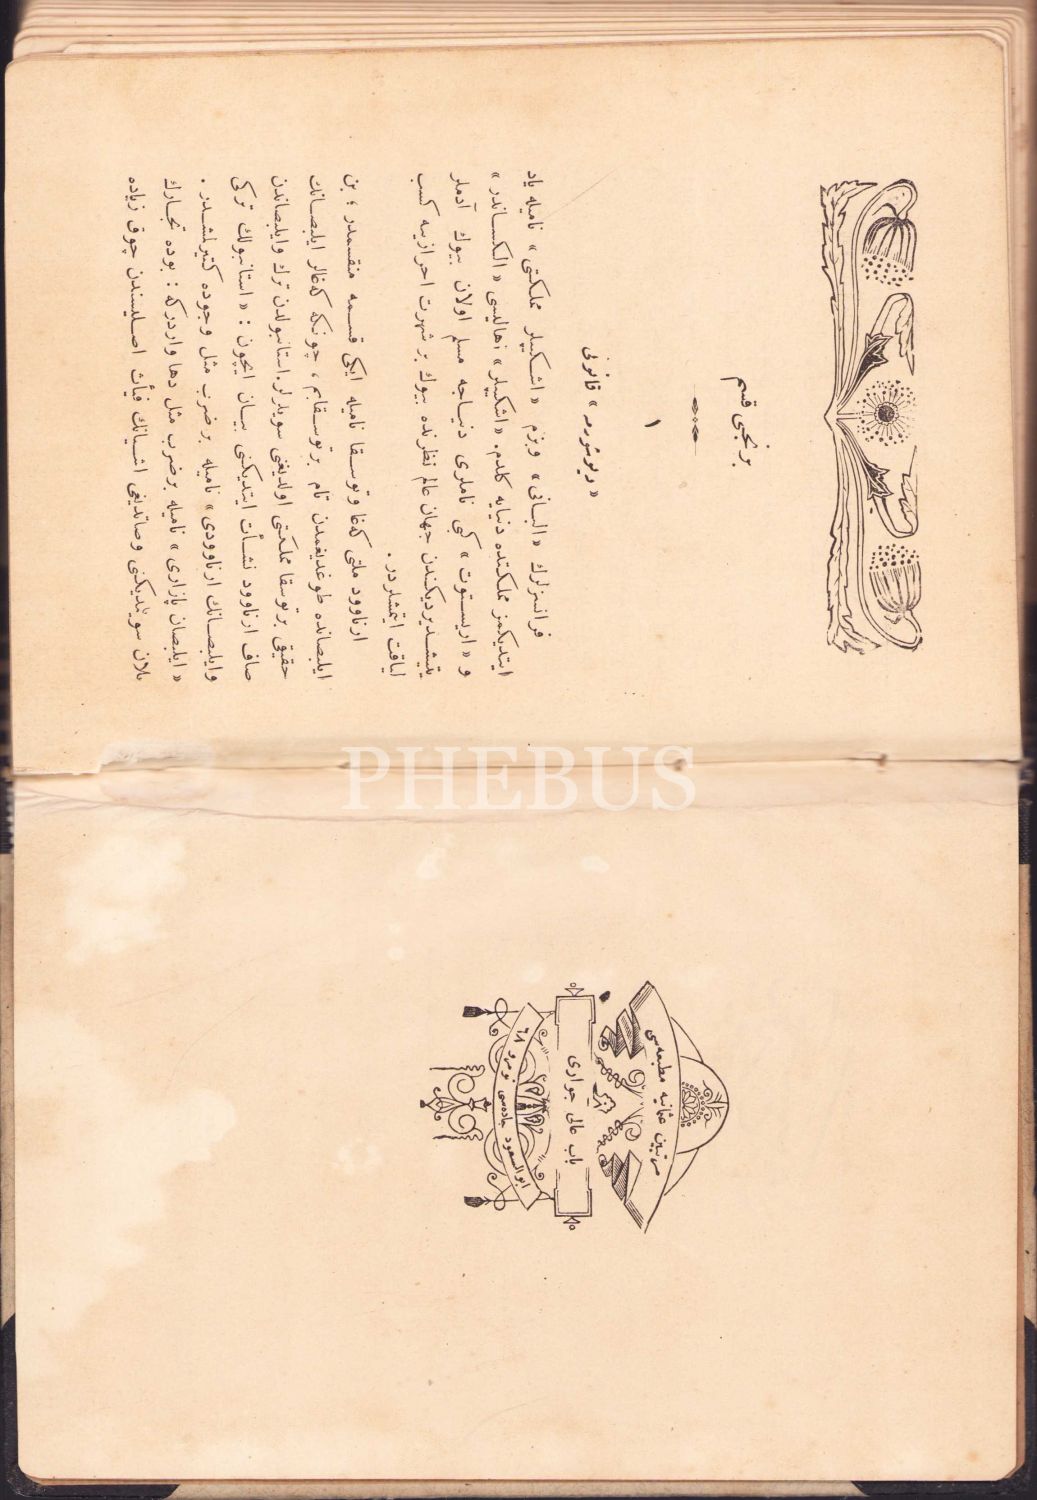 برنجی قسم
١
« ویوشومه » قانونی
فرانسزلرك «البانی» وبزم «اشكیپلر مملكتی» نامیله یاد
ایتدیكمز مملكتده دنیایه كلدم. «اشكیپلر» اهالیسی «الكساندر»
و «اریستوت» كبی ناملری دنیاجه مسلم اولان بیوك آدملر
یتیشدیردیكندن جهان عالم نظرنده بیوك بر شهرت احرازینه كسب
لیاقت ایتمشلردر.
ارناوود ملتی كه‌غا وتوسقا نامیله ایكی قسمه منقسمدر ؛ بن
ایلبصانده طوغدیغمدن تام بر توسقایم ، چونكه كه‌غالر ایلبصانك
حقیقی بر توسقا مملكتی اولدیغی سویلرلر. استانبولدن ترك وایلبصاندن
صاف ارناوود نشأت ایتدیكنی بیان ایچون : «استانبولك تركی
وایلبصانك ارناوودی» نامیله بر ضرب مثل وجوده كتیرلمشدر .
« ایلبصان پازاری » نامیله بر ضرب مثل دها واردركه : بوده تجارك
یلان سویلدیكنی وصاتدیغی اشیانك فیأت اصلیسندن چوق زیاده
PHEBUS
مرتبین عثمانیه مطبعه‌سی
باب عالی جواری
ابوالسعود جاده‌سی نومرو ٦٨